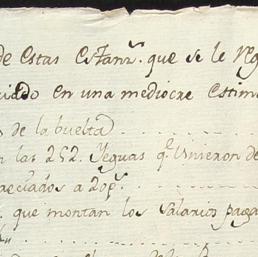 de estas Estanᵃ. que se le reg
cido en una mediocre estim
s de la buelta
n las 252. Yeguas qᵉ Vinieron de
apreciados a 20 pˢ.
que montan los Salarios paga